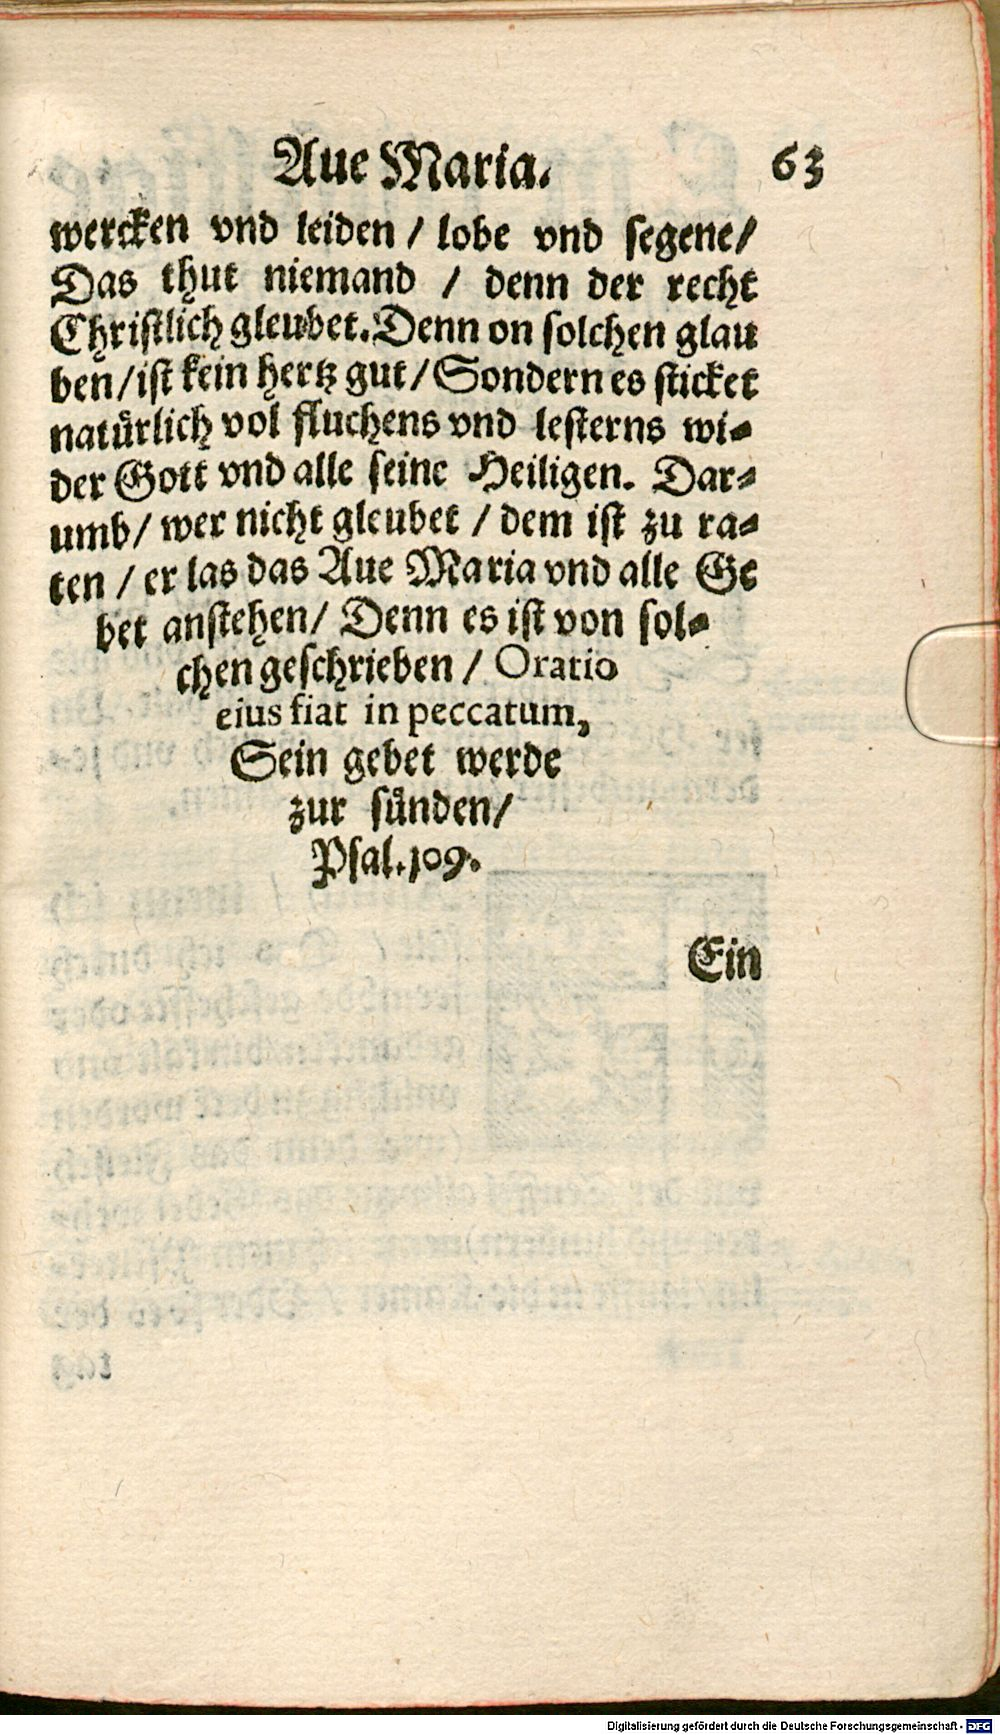 Aue Maria. 63
wercken vnd leiden / lobe vnd segene/
Das thut niemand / denn der recht
Christlich gleubet. Denn on solchen glau
ben/ist kein hertz gut/Sondern es sticket
natürlich vol fluchens vnd lesterns wi-
der Gott vnd alle seine Heiligen. Dar-
umb/ wer nicht gleubet / dem ist zu ra-
ten / er las das Aue Maria vnd alle Ge
bet anstehen/ Denn es ist von sol-
chen geschrieben / Oratio
eius fiat in peccatum,
Sein gebet werde
zur sünden/
Psal.109.
Ein
Digitalisierung gefördert durch die Deutsche Forschungsgemeinschaft - DFG